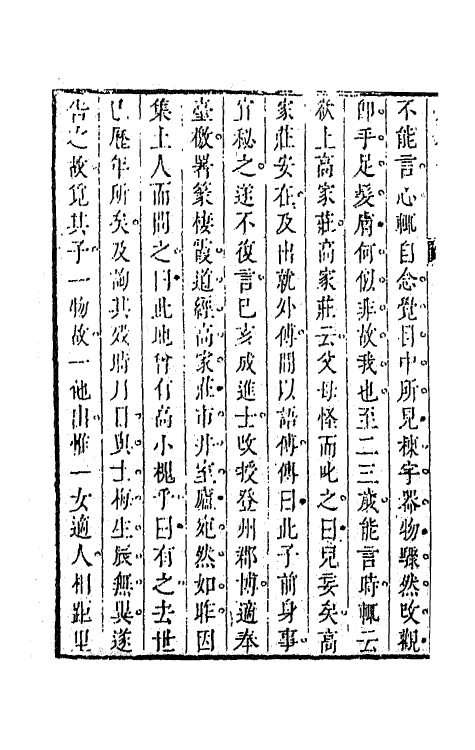 不能言心輒自念覺目中所見棟宇器物驟然改觀
即手足髮膚何似非故我也至二三歲能言時輒云
欲上高家莊高家莊云父母怪而叱之曰兒妄矣高
家莊安在及出就外傅間以語傅傅曰此子前身事
宜秘之遂不復言己亥成進士改授登州郡博適奉
臺檄署篆棲霞道經高家莊市井室廬宛然如昨因
集土人而問之曰此地曾有高小槐乎曰有之去世
已歷年所矣及詢其歿時月日與士梅生辰無異遂
告之故覓其子一物故一他出惟一女適人相距里